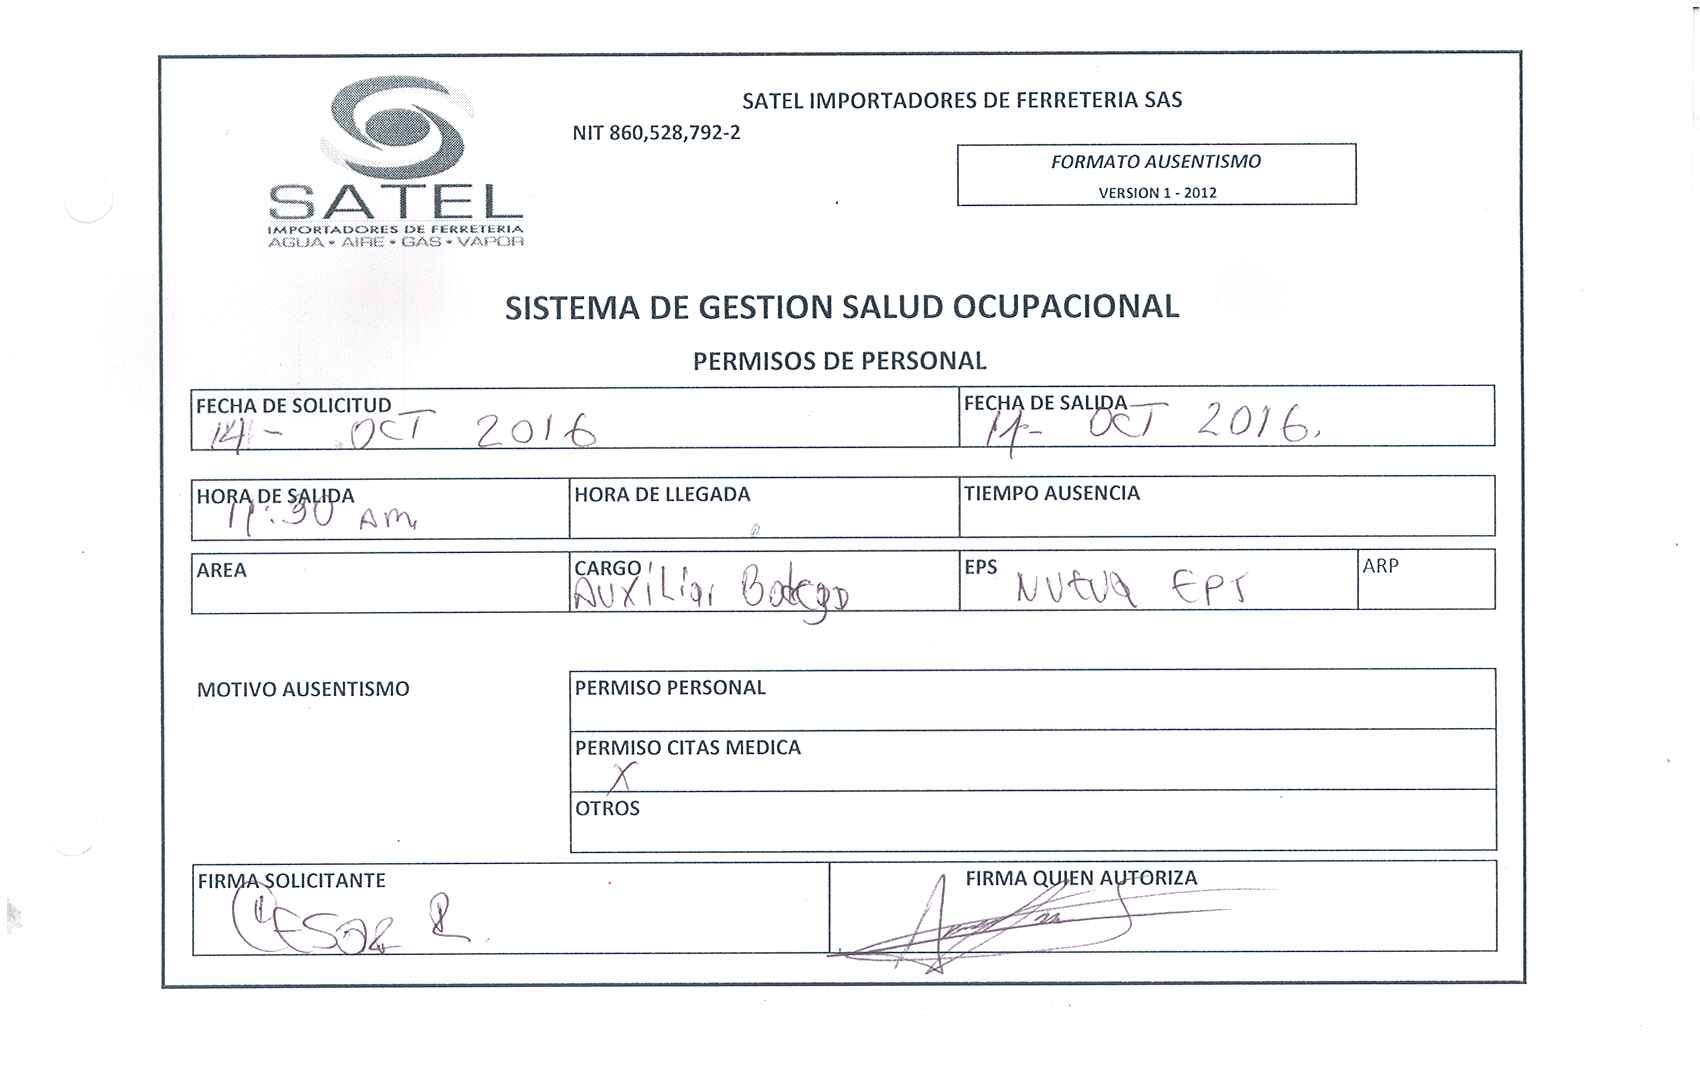 SATEL
IMPORTADORES DE FERRETERIA
AGUA • AIRE • GAS • VAPOR
SATEL IMPORTADORES DE FERRETERIA SAS
NIT 860,528,792-2
FORMATO AUSENTISMO
VERSION 1 - 2012
SISTEMA DE GESTION SALUD OCUPACIONAL
PERMISOS DE PERSONAL
FECHA DE SOLICITUD
14- OCT 2016
FECHA DE SALIDA
14- OCT 2016.
HORA DE SALIDA
11:30 Am.
HORA DE LLEGADA
TIEMPO AUSENCIA
AREA
CARGO
AUXILiar Bodega
EPS
NUEVA EPS
ARP
MOTIVO AUSENTISMO
PERMISO PERSONAL
PERMISO CITAS MEDICA
X
OTROS
FIRMA SOLICITANTE
CESAR R.
FIRMA QUIEN AUTORIZA